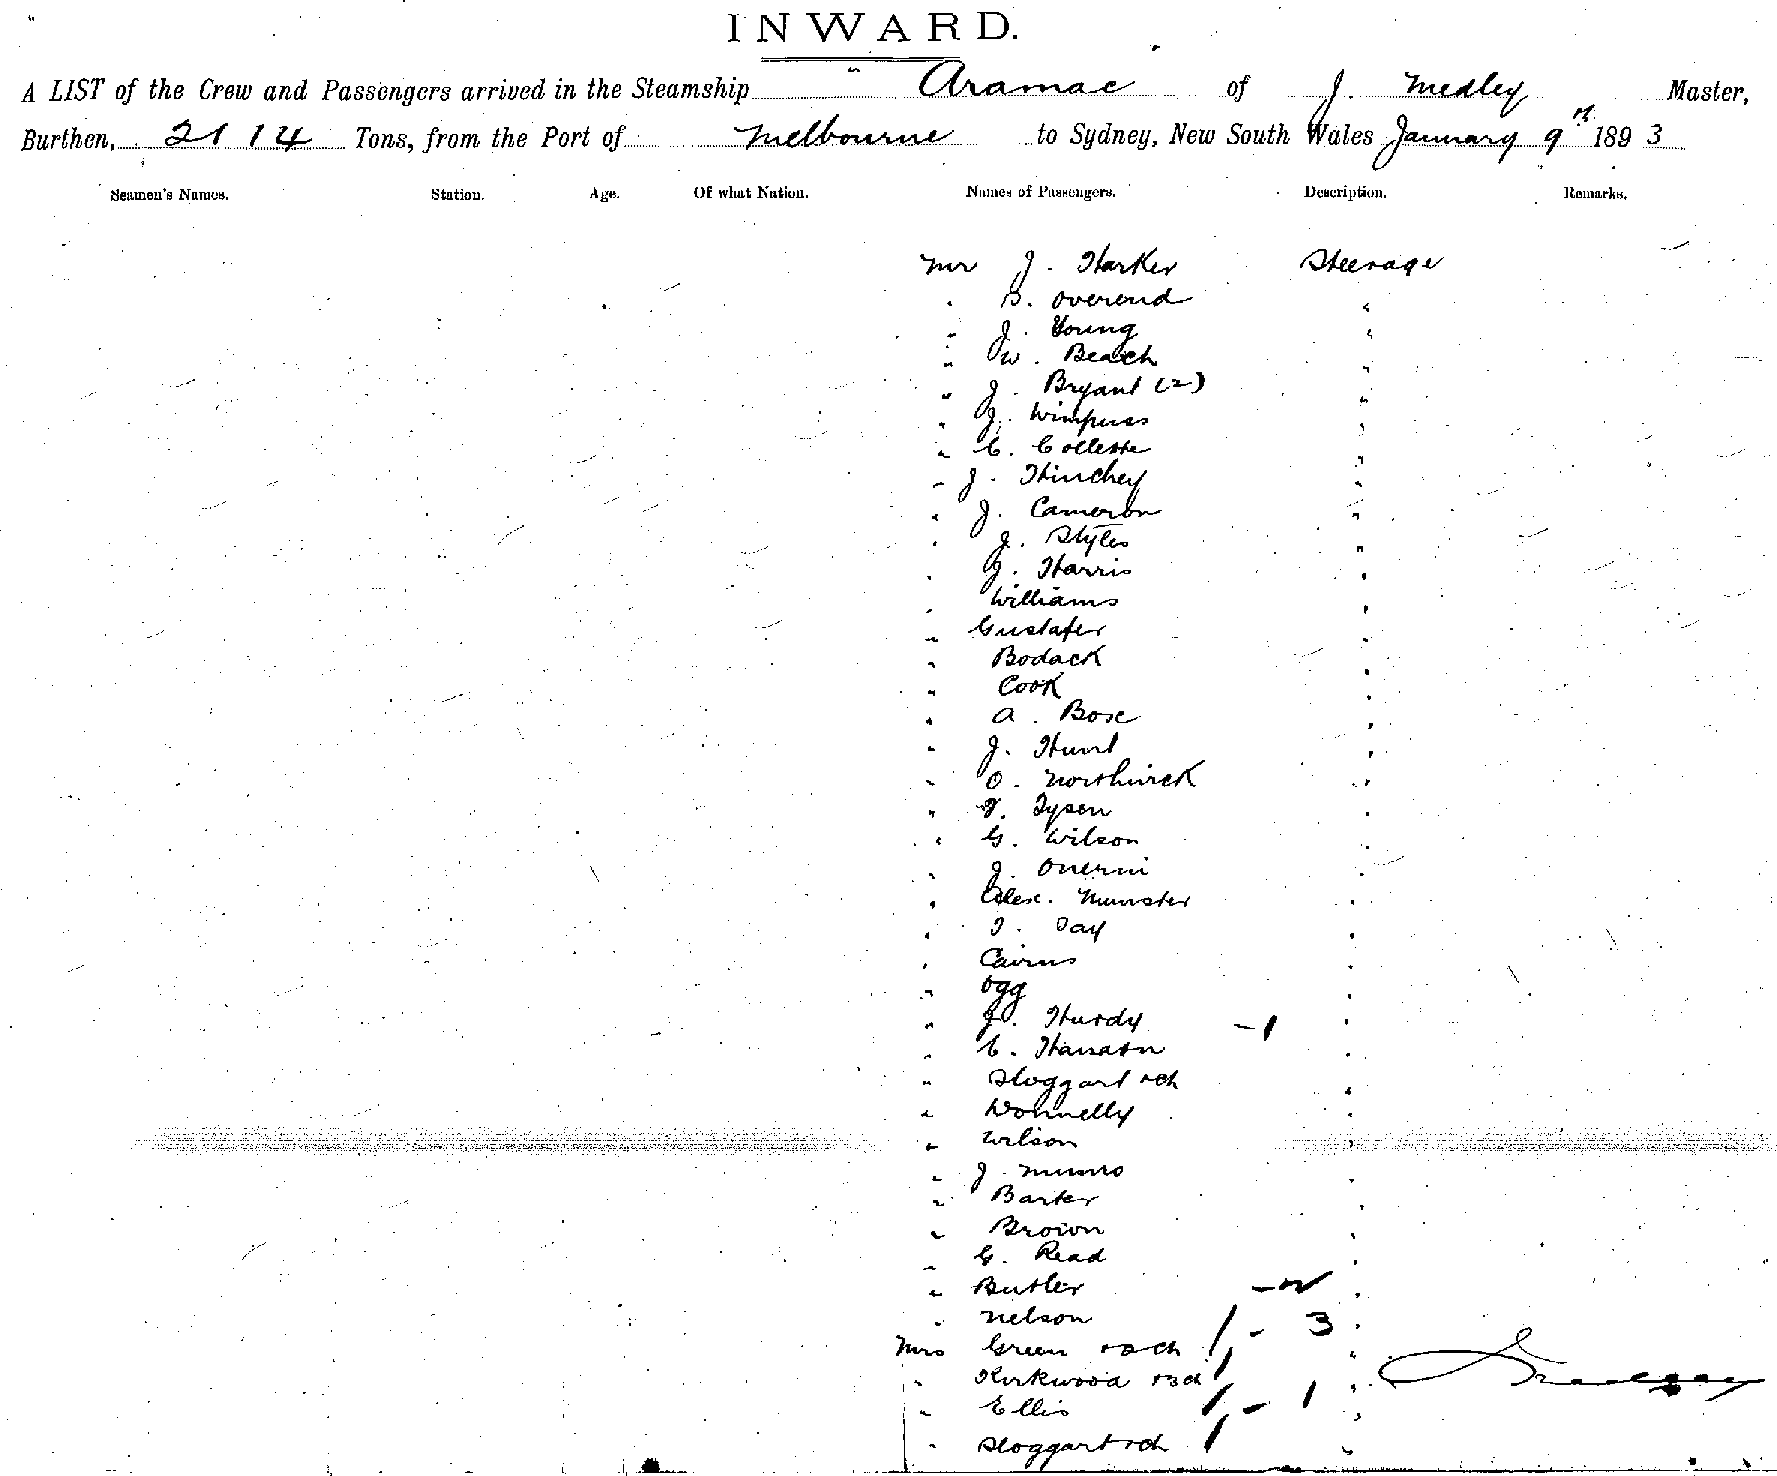 INWARD.
A LIST of the Crew and Passengers arrived in the Steamship Aramac of J. Medley Master,
Burthen, 2114 Tons, from the Port of Melbourne to Sydney, New South Wales January 9th 1893
Seamen's Names. Station. Age. Of what Nation. Names of Passengers. Description. Remarks.
Mr J. Harker Steerage
" B. Overend "
" J. Young "
" W. Beach "
" J. Bryant (2) "
" J. Wimpuss "
" C. Collette "
" J. Hinchey "
" J. Cameron "
" J. Styles "
" J. Harris "
" Williams "
" Gustafer "
" Bodack "
" Cook "
" A. Bose "
" J. Hunt "
" O. "
" T. Tysen "
" G. Wilson "
" J. "
" Alex. Munster "
" J. "
" Cairns "
" Ogg "
" J. Hurdy - 1 "
" C. "
" Sloggart + ch "
" Donnelly "
" Wilson "
" J. Munro "
" Barker "
" Brown "
" G. Read "
" Butler "
" Nelson - 3 "
Mrs Green + 2 ch "
" Kirkwood "
" Ellis - 1 "
" Sloggart + ch "